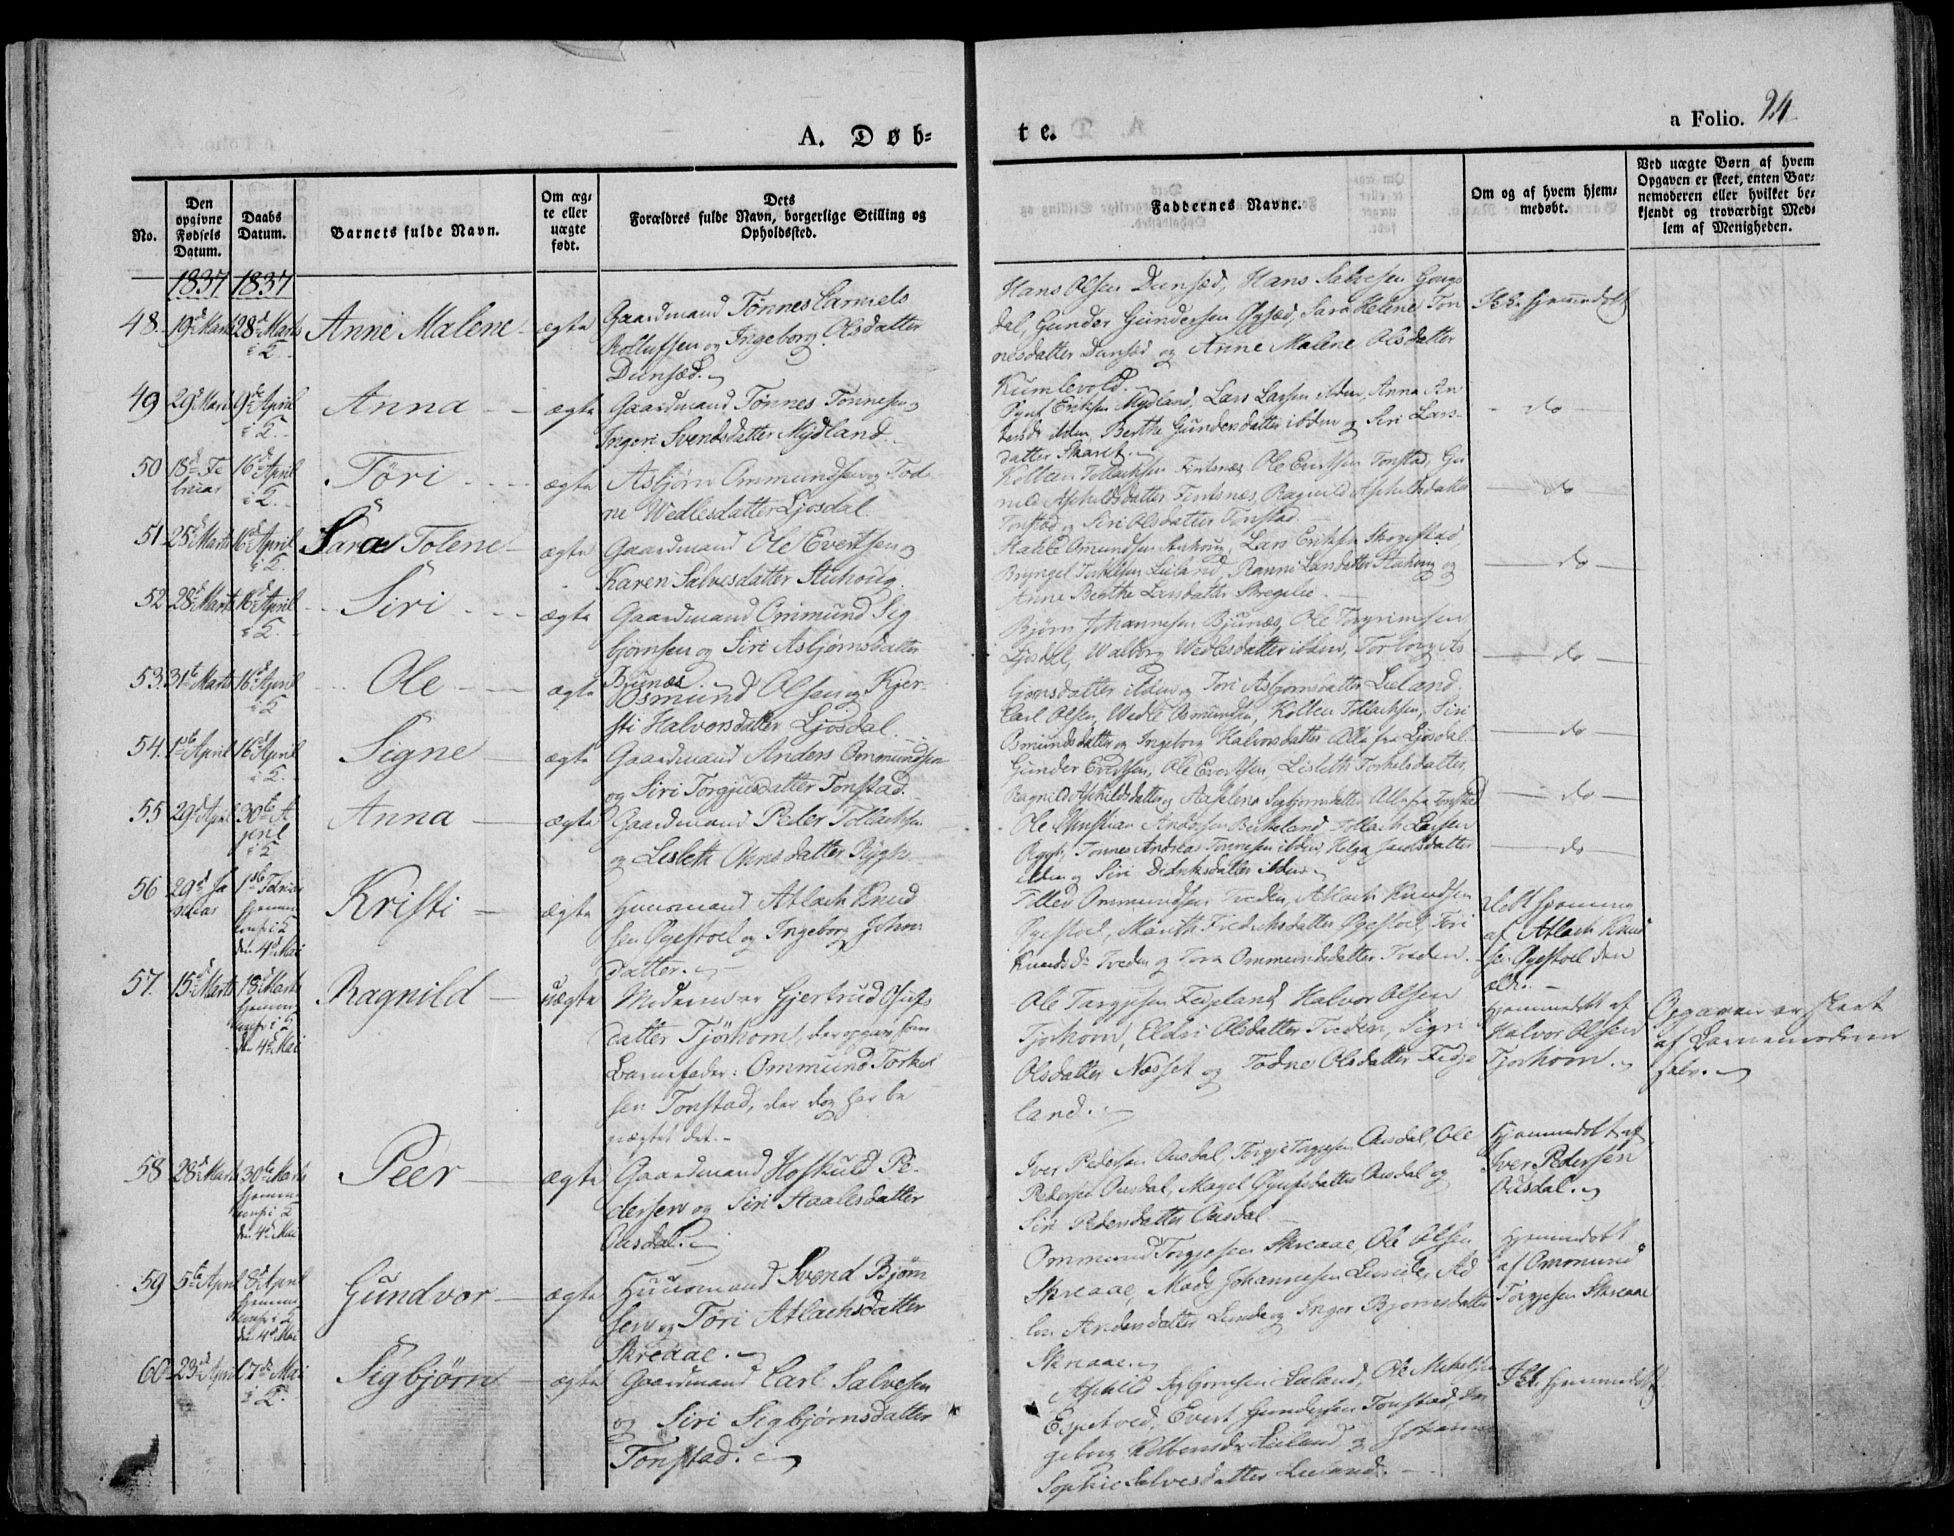 A. Døb=
te.
a Folio. 24
No.
Den opgivne Fødsels Datum.
Daabs Datum.
Barnets fulde Navn.
Om æg=
te eller
uægte
født.
Dets
Forældres fulde Navn, borgerlige Stilling og
Opholdssted.
Faddernes Navne.
Om og af hvem hjem=
medøbt.
Ved uægte Børn af hvem
Opgaven er skeet, enten Bar=
nemoderen eller hvilket be=
kjendt og troværdigt Med=
lem af Menigheden.
1837 1837
48. 19de Marts 28de Marts i K. Anne Malene ægte
Gaardmand Tønnes Carmels
Rollufsen og Ingeborg Olsdatter
Dunsæd.
Hans Olsen Dunsæd, Hans Salvesen
dal, Gunder Gundersen, Sara Helene Tøn
nesdatter Dunsæd og Anne Malene Olsdatter
Kumlevold.
Ikke hjemmedøbt
49 29de Marts 9de April i K. Anna ægte
Gaardmand Tønnes Tønnesen og
Ingeri Svendsdatter Mydland.
Eriksen Mydland, Lars Larsen ibden, Anna
ibden, Berthe Gundersdatter ibden og Siri Lars-
datter Skaret.
do
50 18de Februar 16de April i K. Töri ægte
Asbjörn Ommundsen og Tod
ne Wedlesdatter Ljosdal.
Kolben Tollachsen Fintsnæs, Ole Evertsen Tonstad, Gu
nild Aschildsdatter Fintsnæs, Ragnild Aschildsdatter
Tonstad og Siri Olsdatter Tonstad.
do
51 25de Marts 16de April i K. Sara Tolene ægte
Gaardmand Ole Evertsen og
Karen Salvesdatter Stuhoug.
Omundsen Stuhoug, Lars Eriksen
Bryngel Torkelsen Lieland, Larsdatter Stuhoug og
Anne Berthe Larsdatter
do
52 28de Marts 16de April i K. Siri ægte
Gaardmand Ommund Sig
bjørnsen og Siri Asbjørnsdatter
Bjunæs.
Bjørn Johannesen Bjunæs, Ole Torgrimsen
Ljosdal, Walborg Wedlesdatter ibden, Torborg As
bjørnsdatter ibden og Tori Asbjørnsdatter Lieland.
do
53. 31te Marts 16de April i K Ole ægte
Osmund Olsen og Kjer-
sti Halvorsdatter Ljosdal.
Carl Olsen, Wedle Osmundsen, Kolben Tollachsen, Siri
Osmundsdatter og Ingeborg Halvorsdatter Alle fra Ljosdal
do
54. 1ste April 16de April i K. Signe ægte
Gaardmand Anders Ommundsen
og Siri Torgjusdatter Tonstad.
Gunder Evertsen, Ole Evertsen, Lisbeth Torkelsdatter,
Ragnild Aschildsdatter og Sigbjørnsdatter Alle fra Tonstad
do
55 29de April 30te April i K Anna ægte
Gaardmand Peder Tollachsen
og Lisbeth Ohnsdatter
Ole Christian Andersen Birkeland Tollach Larsen
Tønnes Andreas Tønnesen ibden, Helga Jacobsdatter
ibden og Siri Didriksdatter ibden
do
56 29de Januar 1ste Februar hjemme den 4de Mai Kristi ægte
Huusmand Atlach Knud
sen Øyestoel og Ingeborg Johns
datter.
Tilled Ommundsen Tveden, Atlach Knudsen
Øyestoel, Marith Fredriksdatter Øyestoel, Tori
Knudsdr Tveden og Tora Ommundsdatter Tveden.
Døbt hjemme
af Atlach Knud
sen Øyestoel den
ældr.
57. 15de Marts 18de Marts hjemme den 4de Mai Ragnild uægte
Moderen er Gjertrud Osufs
datter Tjörhom, der opgav som
Barnefader: Ommund Torkel
sen Tonstad, der dog har be
nægtet det.
Ole Targjesen Fidjeland, Halvor Olsen
Tjorhom, Eldri Olsdatter Tveden, Sigri
Olsdatter Næsset og Todne Olsdatter Fidje
land.
Hjemmedøbt af
Halvor Olsen
Tjorhom.
Opgaven er skeet
af Barnemoderen
selv.
58 28de Marts 30te Marts hjemme den 4de Mai Peer ægte
Gaardmand Hoskuld Pe-
dersen og Siri Staalesdatter
Ousdal.
Iver Pedersen Ousdal, Torgje Torgjesen Ousdal, Ole
Pedersen Ousdal, Magel datter Ousdal og
Siri Pedersdatter Ousdal
Hjemmedøbt af
Iver Pedersen
Ousdal.
59 5te April 8de April hjemme den 4de Mai Gundvor ægte
Huusmand Svend Bjørn
sen og Töri Atlachsdatter
Skreaae.
Ommund Torgjesen Skreaae, Ole Olsen
Skreaae, Mads Johannesen Lunde, Ad
len Andersdatter Lunde og Inger Bjørnsdatter
Skreaae.
Hjemmedøbt
af Ommund
Torgjesen Skreaae
60 23de April 7de Mai i K. Sigbjørn ægte
Gaardmand Carl Salvesen
og Siri Sigbjørnsdatter
Tonstad.
Aschild Sigbjørnsen Lieland, Ole Mikelsen
Espetved, Evert Gundersen Tonstad, In
geborg Kolbensdr Lieland og Johanne
Sophie Salvesdatter Lieland.
Ikke hjemmedøbt